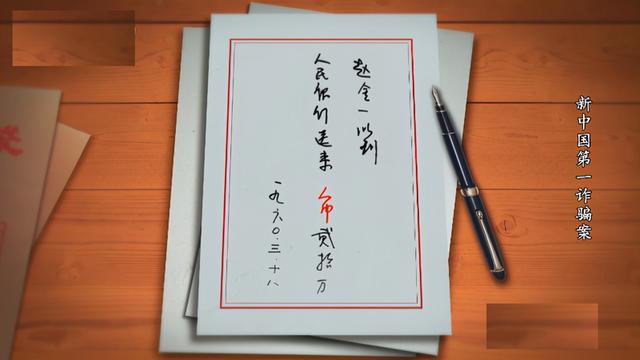 新中国第一诈骗案
赵全一收到
人民银行送来 币贰拾万
一九六〇.三.十八